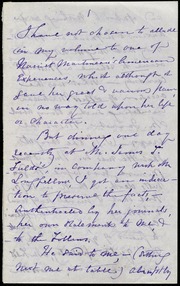 1
I have not chosen to allude
in my volume to one of
Harriet Martineau's American
Experiences, which although it
gave her great & serious pain
in no way told upon her life
or character.
But dining one day
recently at Mr James T
Fields' in company with Mr
Longfellow I got an
to preserve the facts,
Authenticated by her friends,
her own statement to me &
to the Follens.
He said to me — (
next me at table) abruptly